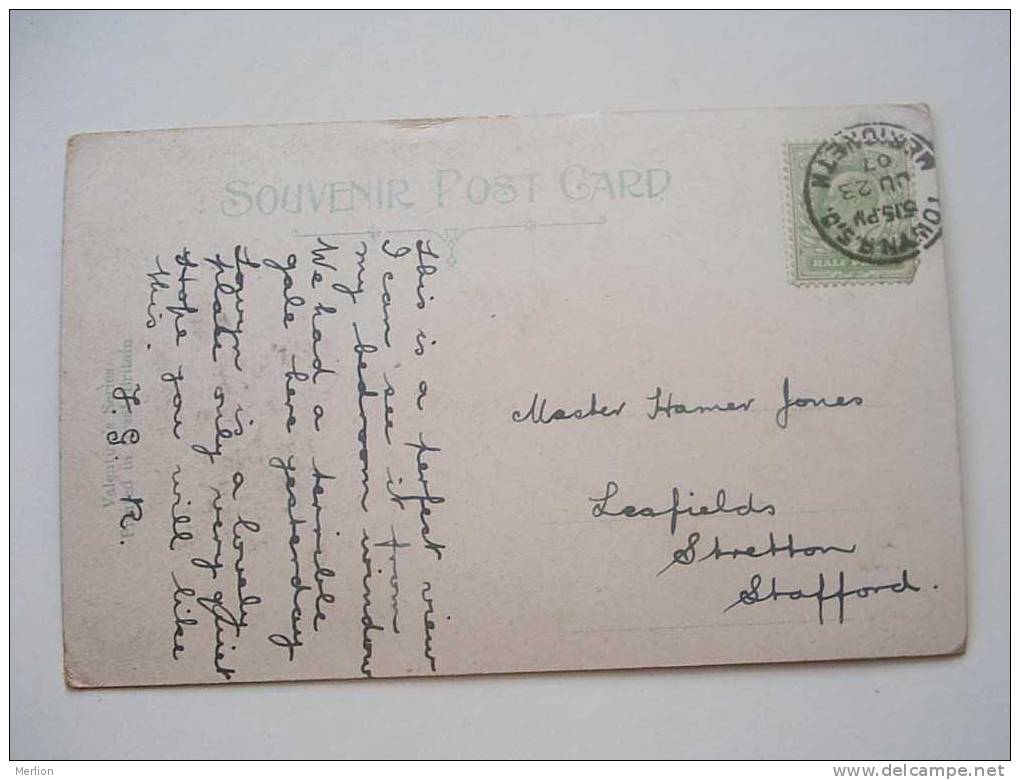 SOUVENIR POST CARD
TOWYN R.S.O.
MERIONETH
5.15 PM
JU 23
07
HALF
This is a perfect view
I can see it from
my bedroom window
We had a terrible
gale here yesterday
Towyn is a lovely
place only very quiet
Hope you will like
this.
Master Hamer Jones
Leafields
Stretton
Stafford.
Valentine's Series
Britain
Merlion
delcampe.net